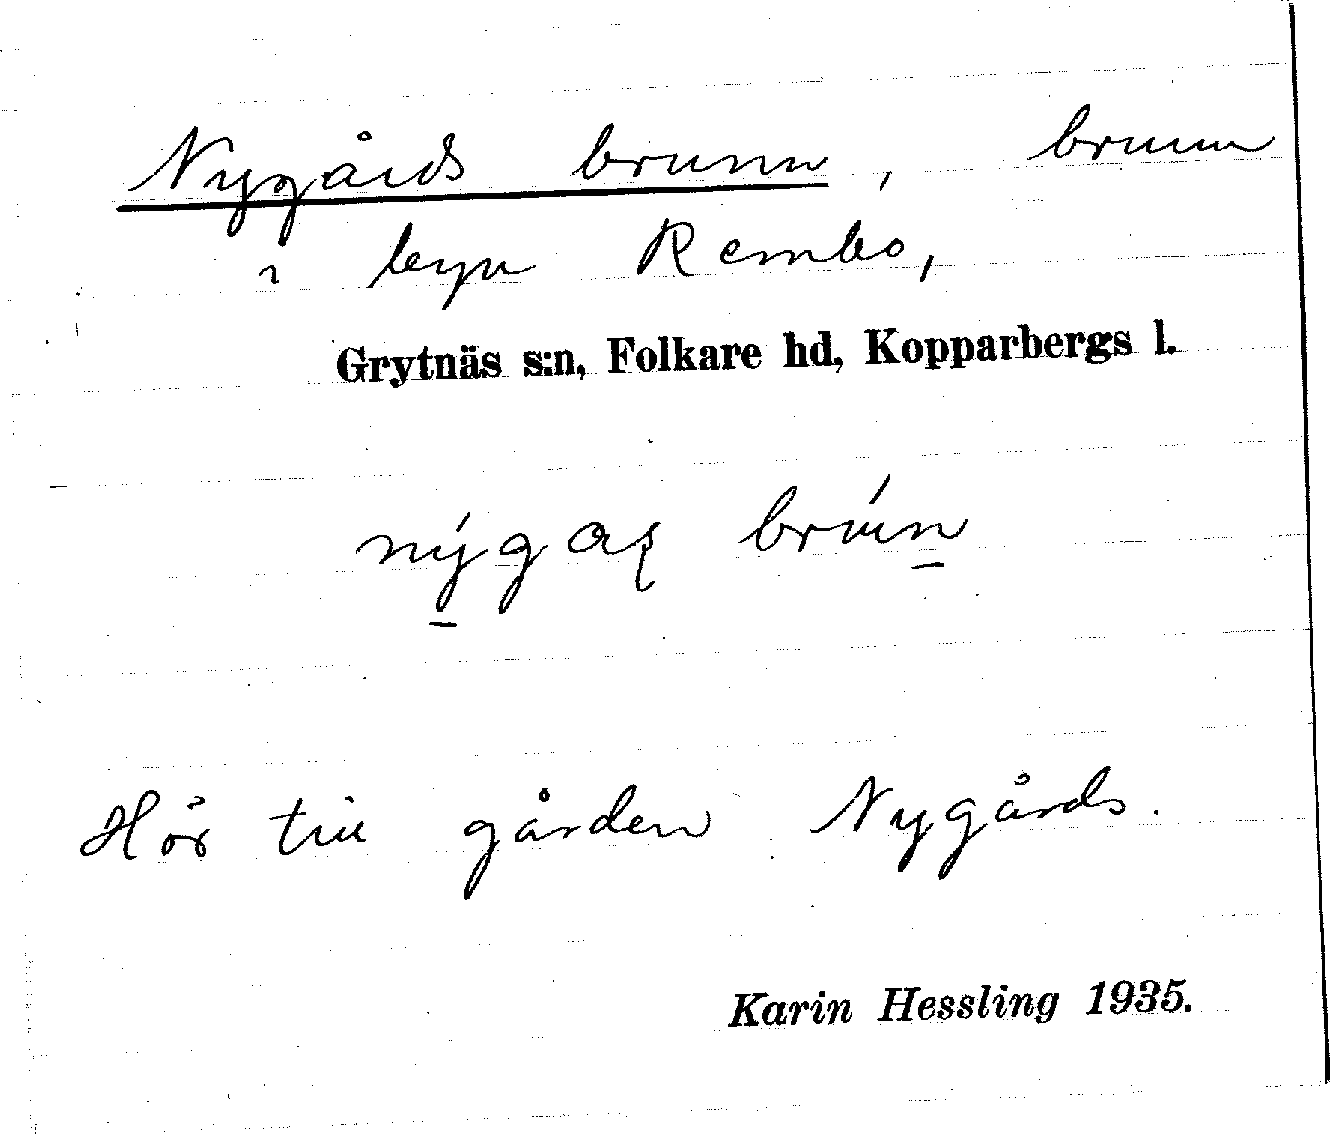 Nygårds brunn, brunn
i byn Rembo,
Grytnäs s:n, Folkare hd, Kopparbergs l.
nýgaʂ brún
Hör till gården Nygårds.
Karin Hessling 1935.